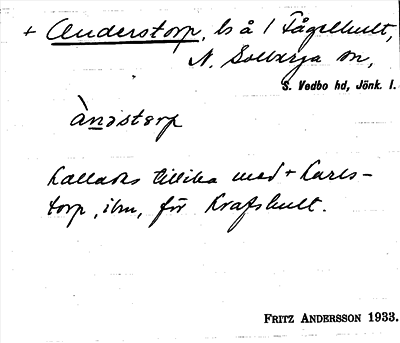 + Anderstorp, ls å 1 Fågelhult,
N. Solberga sn,
S. Vedbo hd, Jönk. l.
Àndstorp
kallades tillika med + Karls-
torp, ibm, för Krafshult.
FRITZ ANDERSSON 1933.